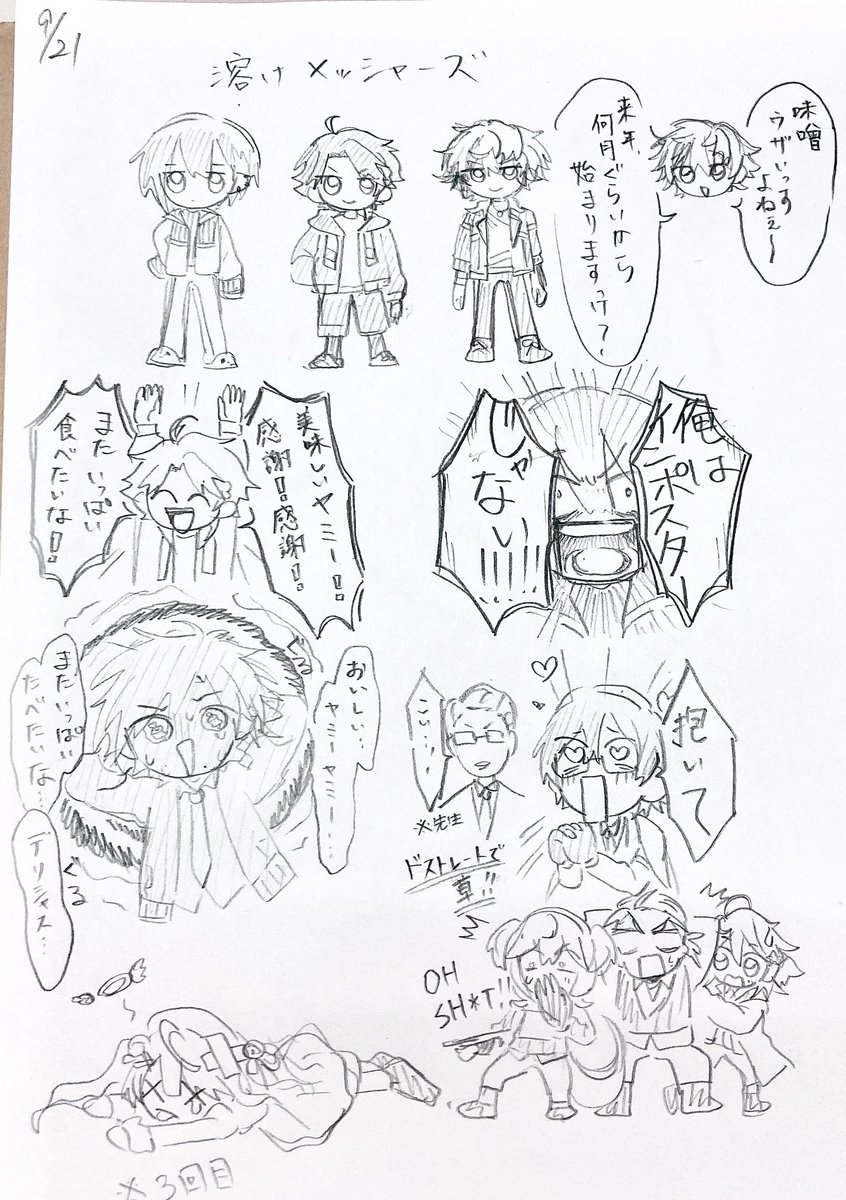 9/21
溶けメッシャーズ
味噌
ウザいっす
よねぇ〜
来年、
何月ぐらいから
始まりますっけ？
美味しいヤミー！！
感謝！感謝！
またいっぱい
食べたいな！
俺は
インポスター
じゃ
ない!!!!!
おいしい…
ヤミーヤミー…
またいっぱい
たべたいな…
デリシャス…
ぐる
ぐる
抱いて
こい…!
※先生
ドストレートで
草!!
OH
SH*T!!
※3回目